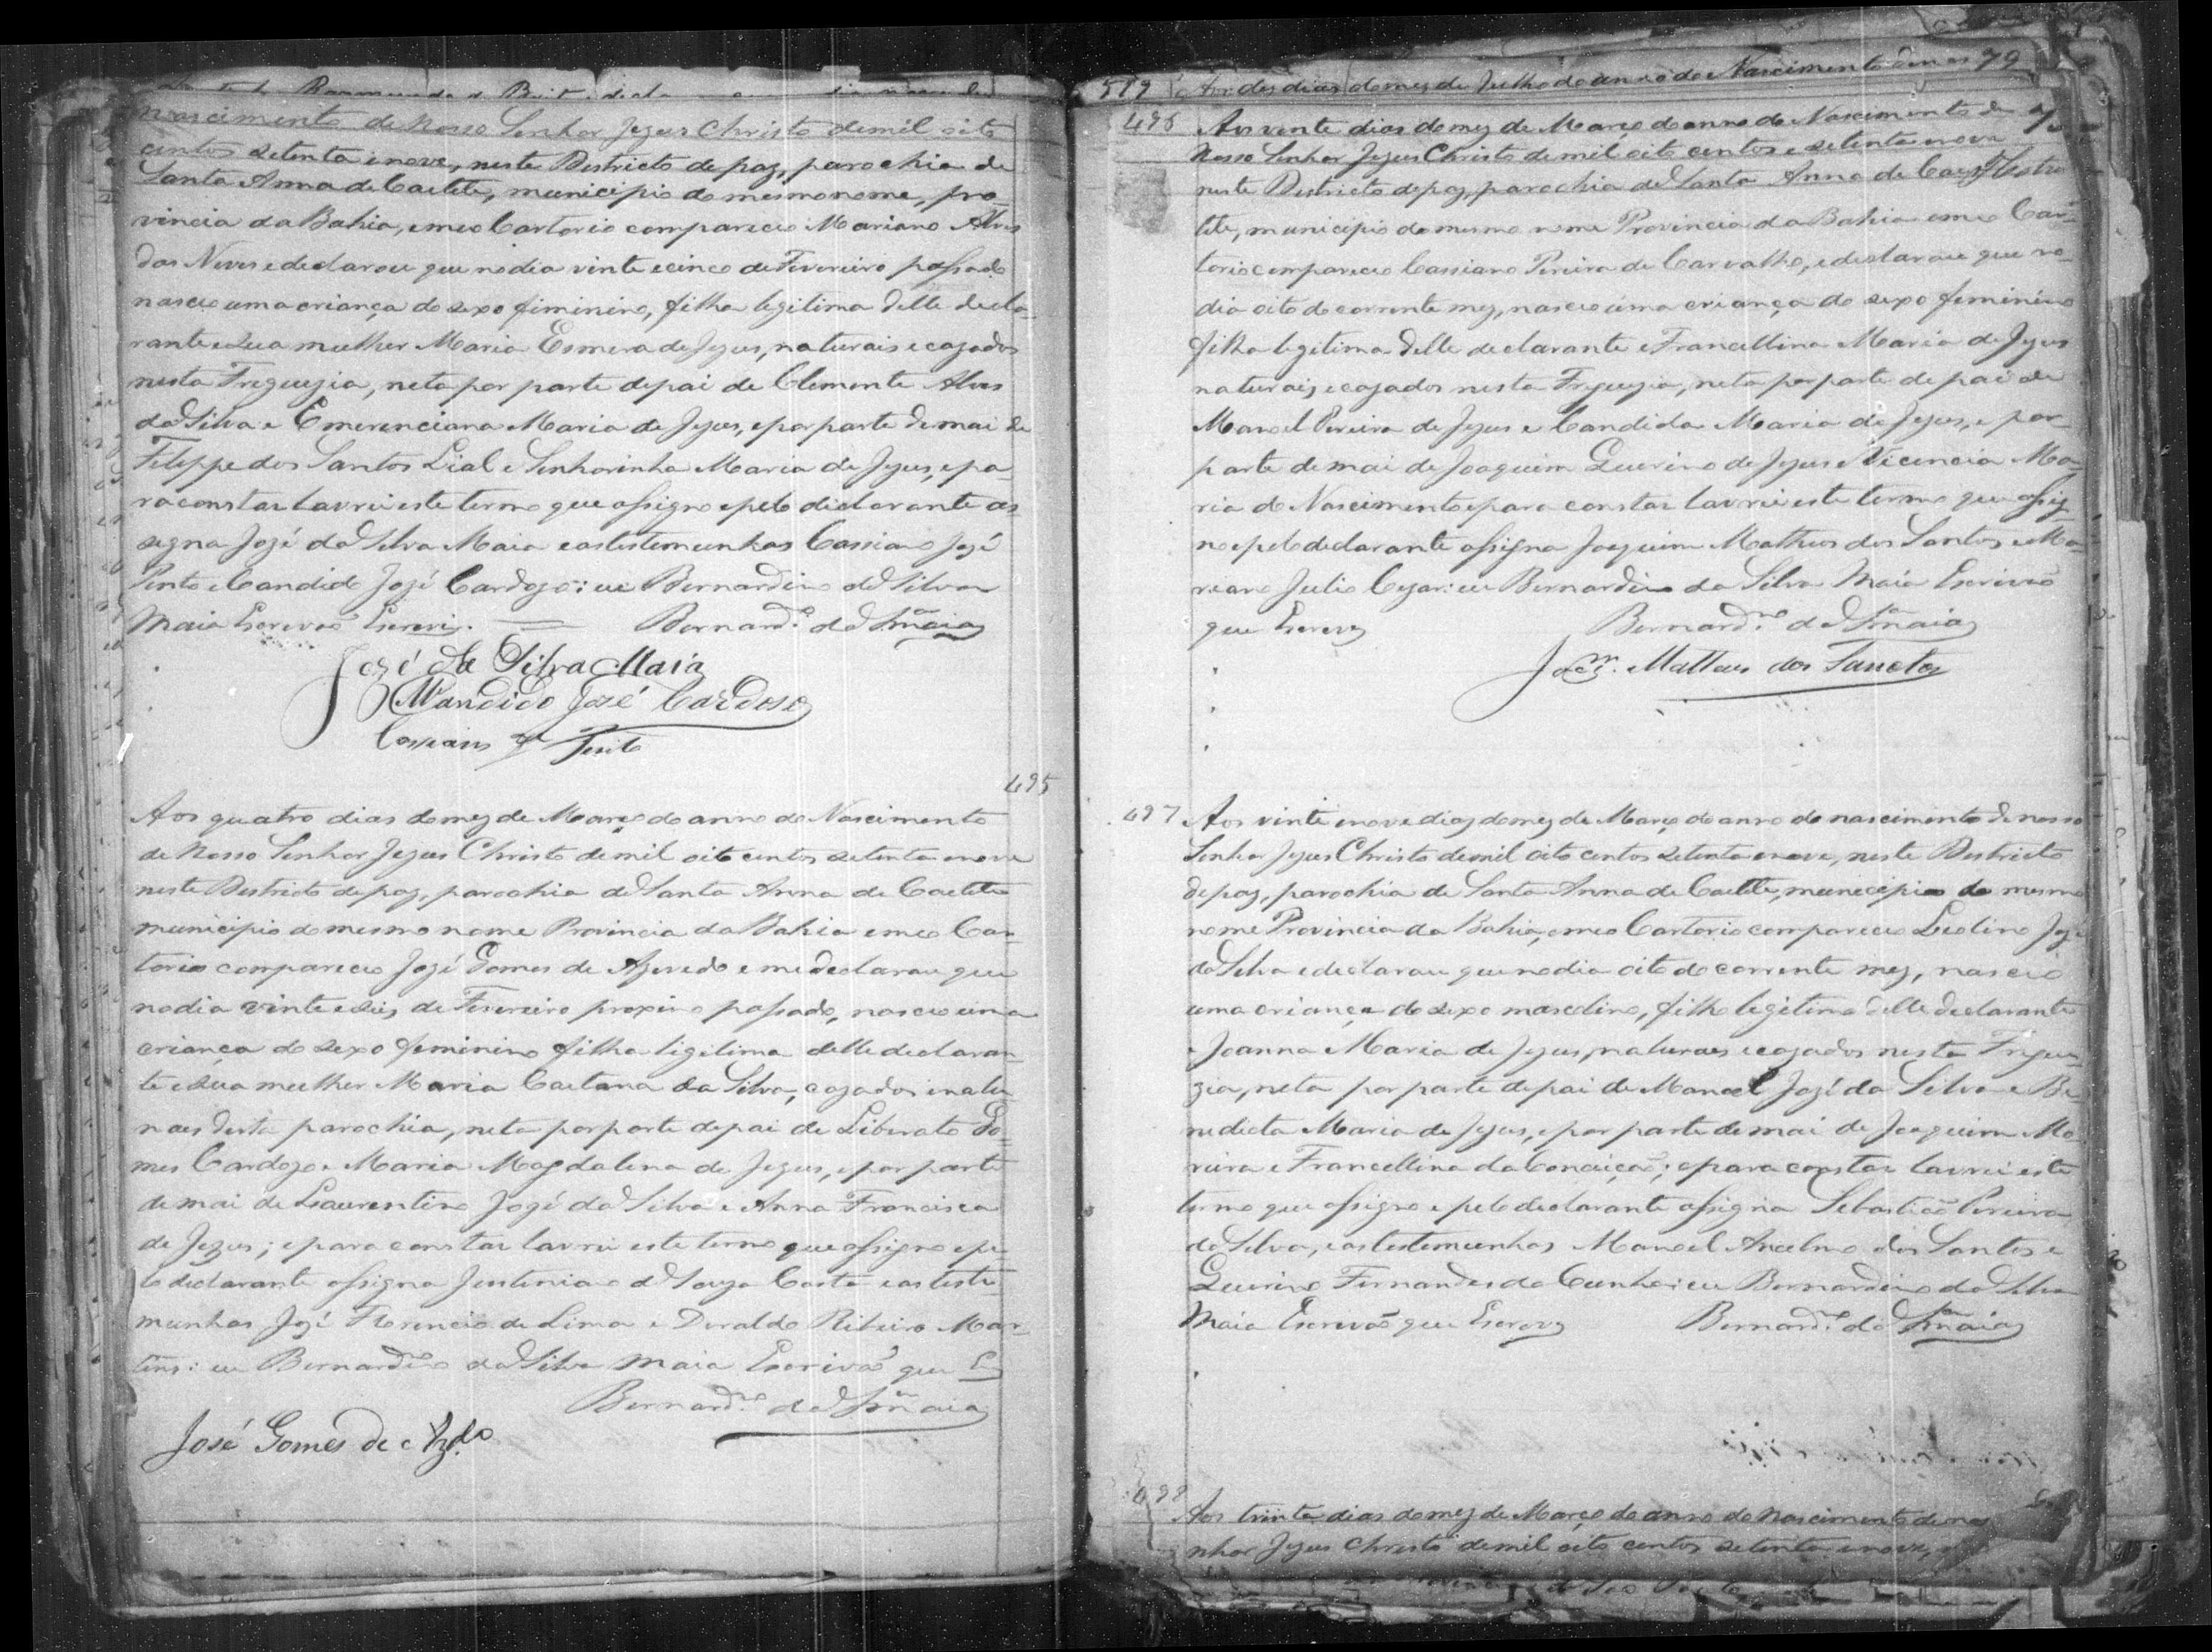 nascimento de Nosso Senhor Jezus Christo de mil oito
centos setenta e nove, neste Destricto de paz, parochia de
Santa Anna de Caetite, municipio do mesmo nome, pro-
vincia da Bahia, em meo Cartorio compareceo Mariano Alves
das Neves e declarou que no dia vinte e cinco de Fevereiro passado
nasceo uma criança do sexo feminino, filha legitima delle decla-
rante e sua mulher Maria Esmera de Jezus, naturais e cazados
nesta Freguezia, neta por parte de pai de Clemente Alves
da Silva e Emerenciana Maria de Jezus, e por parte de mai de
Felippe dos Santos Lial e Senhorinha Maria de Jezus, e pa-
ra constar lavrei este termo que assigno e pelo declarante as-
signa Jozé da Silva Maia e as testemunhas Cassiano Jozé
Pinto e Candido Jozé Cardozo: eu Bernardino da Silva
Maia Escrivaõ Escrevy. Bernard.no da S.a Maia
José da Silva Maia
Candido José Cardoso
Cassiano
495
Aos quatro dias do mez de Março do anno do Nascimento
de Nosso Senhor Jezus Christo de mil oito centos setenta e nove
neste Destricto de paz, parochia de Santa Anna de Caetite
municipio do mesmo nome Provincia da Bahia em meo Car-
torio compareceo Jozé Gomes de Azevedo e me declarou que
no dia vinte e seis de Fevereiro proximo passado, nasceo uma
criança do sexo feminino filha legitima delle declaran-
te e sua mulher Maria Caetana da Silva, cazados e natu-
raes desta parochia, neta por parte de pai de Liberato Go-
mes Cardozo e Maria Magdalena de Jezus, e por parte
de mai de Laurentino Jozé da Silva e Anna Francisca
de Jezus; e para constar lavrei este termo que assigno e pe-
lo declarante assigna Justiniano de Souza Costa e as teste-
munhas Jozé Florencio de Lima e Deraldo Ribeiro Mar-
tins: eu Bernardino da Silva Maia Escrivaõ que
Bernard.no da S.a Maia
José Gomes de Azdo
519 Aos des dias do mez de Julho do anno do Nascimento de nos 79
496 Aos vente dias do mez de Março do anno do Nascimento de
Nosso Senhor Jezus Christo de mil oito centos e setenta e nove
neste Destricto de paz, parochia de Santa Anna de Cae-
tite, municipio do mesmo nome Provincia da Bahia em meo Car-
torio compareceo Cassiano Pereira de Carvalho, e declarou que no
dia oito do corrente mez, nasceo uma criança do sexo feminino
filha legitima delle declarante e Francellina Maria de Jezus
naturais e cazados nesta Freguezia, neta por parte de pai de
Manoel Pereira de Jezus e Candida Maria de Jezus, e por
parte de mai de Joaquim Querino de Jezus e Vicencia Ma-
ria do Nascimento e para constar lavrei este termo que assig-
no e pelo declarante assigna Joaquim Matheus dos Santos e Ma-
riano Julio Cezar: eu Bernardino da Silva Maia Escrivaõ
que Escrevy Bernard.no da S.a Maia
Joaq.m Matheus dos Sanctos
497 Aos vinte e nove dias do mez de Março do anno do nascimento de nosso
Senhor Jezus Christo de mil oito centos setenta e nove, neste Destricto
de paz, parochia de Santa Anna de Caetite, municipio do mesmo
nome Provincia da Bahia, em meo Cartorio compareceo Leolino Jozé
da Silva e declarou que no dia oito do corrente mez, nasceo
uma criança do sexo mascolino, filho legitimo delle declarante
e Joanna Maria de Jezus, naturaes e cazados nesta Fregue-
zia, neta por parte de pai de Manoel Jozé da Silva e Be-
nedicta Maria de Jezus, e por parte de mai de Joaquim Mo-
reira e Francellina da Conceiçaõ; e para constar lavrei este
termo que assigno e pelo declarante assigna Sebastiaõ Pereira
da Silva, e as testemunhas Manoel Ancelmo dos Santos e
Querino Fernandes da Cunha: eu Bernardino da Silva
Maia Escrivaõ que Escrevy Bernard.no da S.a Maia
498
Aos trinta dias do mez de Março do anno do Nascimento de nos
nhor Jezus Christo de mil oito centos setenta e nove,